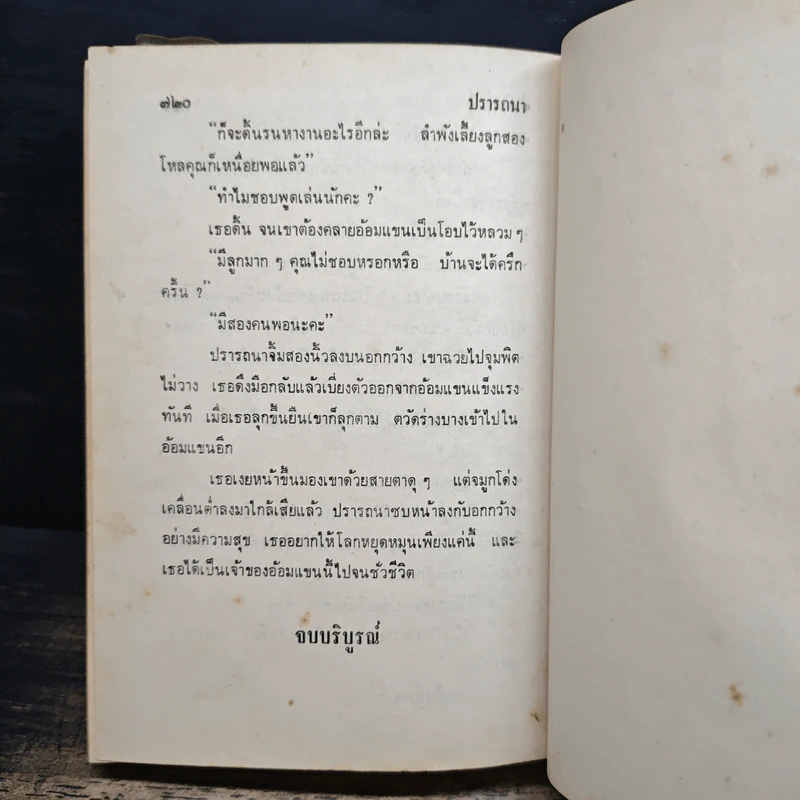 ๗๒๐ ปรารถนา
“ก็จะดิ้นรนหางานอะไรอีกล่ะ ลำพังเลี้ยงลูกสอง
โหลคุณก็เหนื่อยพอแล้ว”
“ทำไมชอบพูดเล่นนักคะ ?”
เธอดิ้น จนเขาต้องคลายอ้อมแขนเป็นโอบไว้หลวม ๆ
“มีลูกมาก ๆ คุณไม่ชอบหรอกหรือ บ้านจะได้ครึก
ครื้น ?”
“มีสองคนพอนะคะ”
ปรารถนาจิ้มสองนิ้วลงบนอกกว้าง เขาฉวยไปจุมพิต
ไม่วาง เธอดึงมือกลับแล้วเบี่ยงตัวออกจากอ้อมแขนแข็งแรง
ทันที เมื่อเธอลุกขึ้นยืนเขาก็ลุกตาม ตวัดร่างบางเข้าไปใน
อ้อมแขนอีก
เธอเงยหน้าขึ้นมองเขาด้วยสายตาดุ ๆ แต่จมูกโด่ง
เคลื่อนต่ำลงมาใกล้เสียแล้ว ปรารถนาซบหน้าลงกับอกกว้าง
อย่างมีความสุข เธออยากให้โลกหยุดหมุนเพียงแค่นี้ และ
เธอได้เป็นเจ้าของอ้อมแขนนี้ไปจนชั่วชีวิต
จบบริบูรณ์